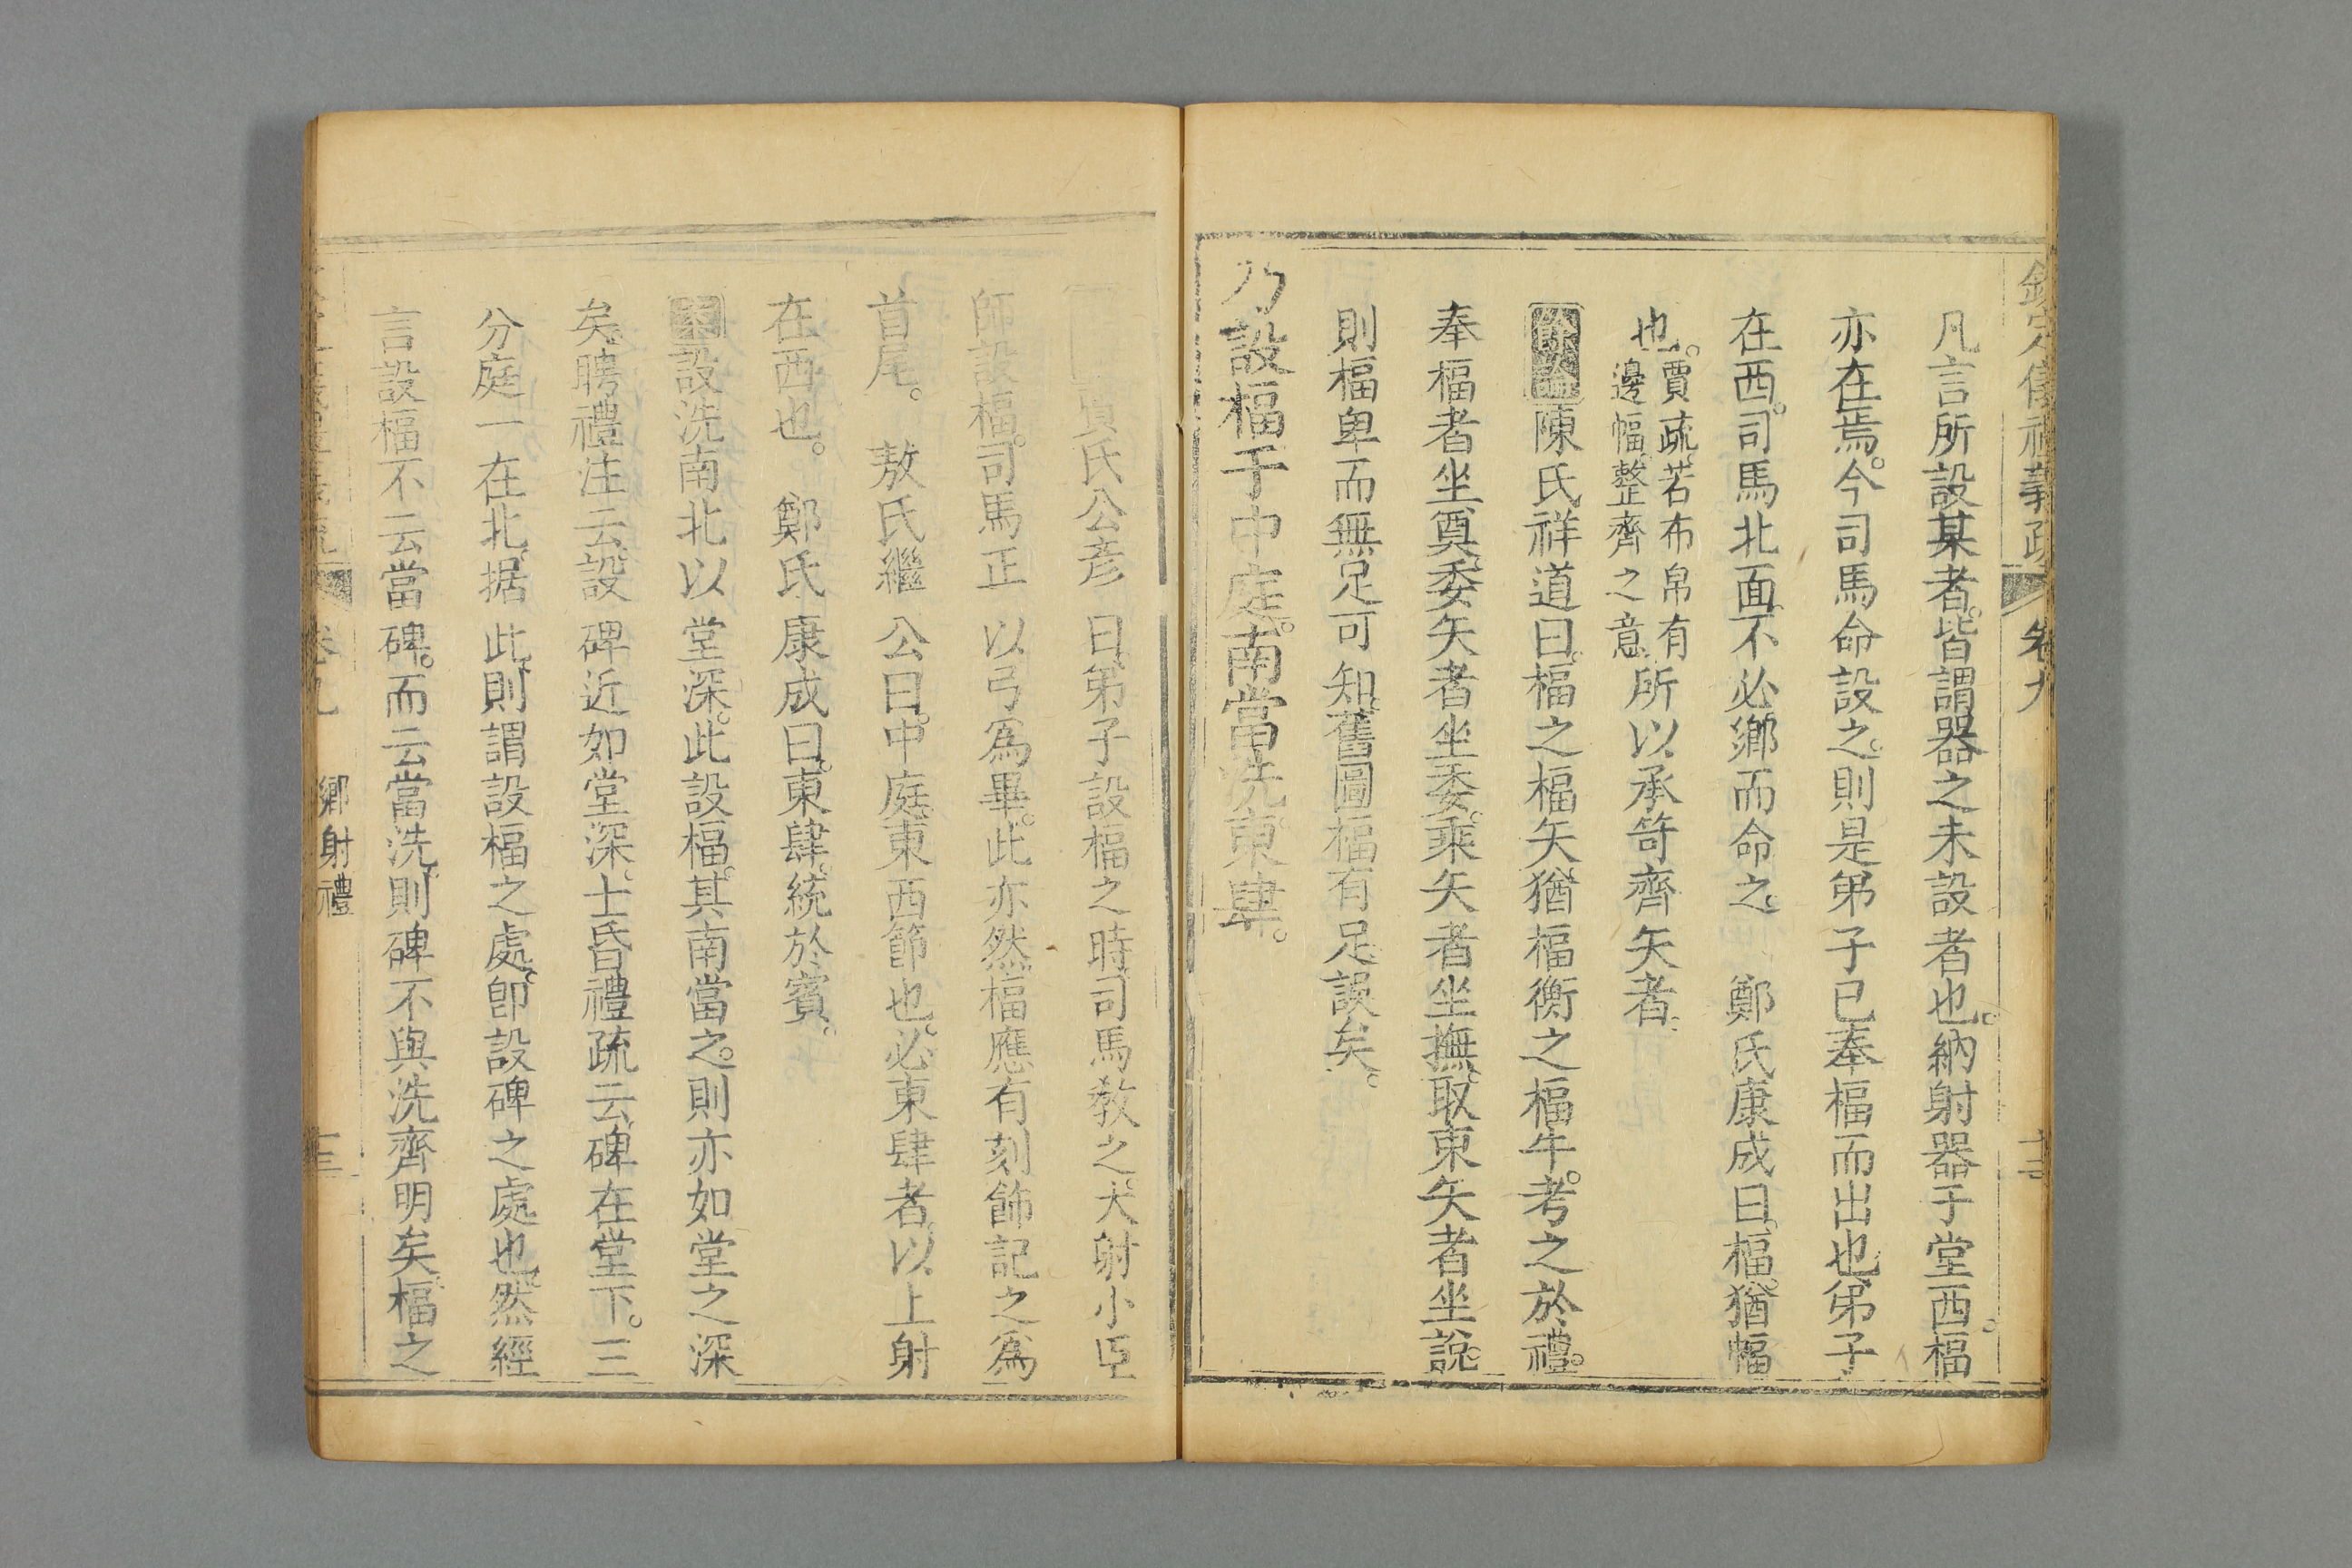 欽定儀禮義疏 卷九
凡言所設某者。皆謂器之未設者也。納射器于堂西。楅
亦在焉。今司馬命設之。則是弟子已奉楅而出也。弟子
在西。司馬北面。不必鄉而命之。 鄭氏康成曰。楅。猶幅
也。賈疏。若布帛有
邊幅。整齊之意。所以承笴齊矢者。
陳氏祥道曰。楅之楅矢。猶楅衡之楅牛。考之於禮。
奉楅者坐奠。委矢者坐委。乘矢者坐撫。取束矢者坐說。
則楅卑而無足可知。舊圖楅有足。誤矣。
乃設楅于中庭。南當洗。東肆。
賈氏公彥曰。弟子設楅之時。司馬教之。大射小臣
師設楅。司馬正以弓爲畢。此亦然。楅應有刻飾。記之爲
首尾。 敖氏繼公曰。中庭。東西節也。必東肆者。以上射
在西也。 鄭氏康成曰。東肆。統於賓。
案設洗南北以堂深。此設楅。其南當之。則亦如堂之深
矣。聘禮注云。設碑近如堂深。士昏禮疏云。碑在堂下。三
分庭一在北。据此。則謂設楅之處。卽設碑之處也。然經
言設楅不云當碑。而云當洗。則碑不與洗齊明矣。楅之
卷九 鄉射禮